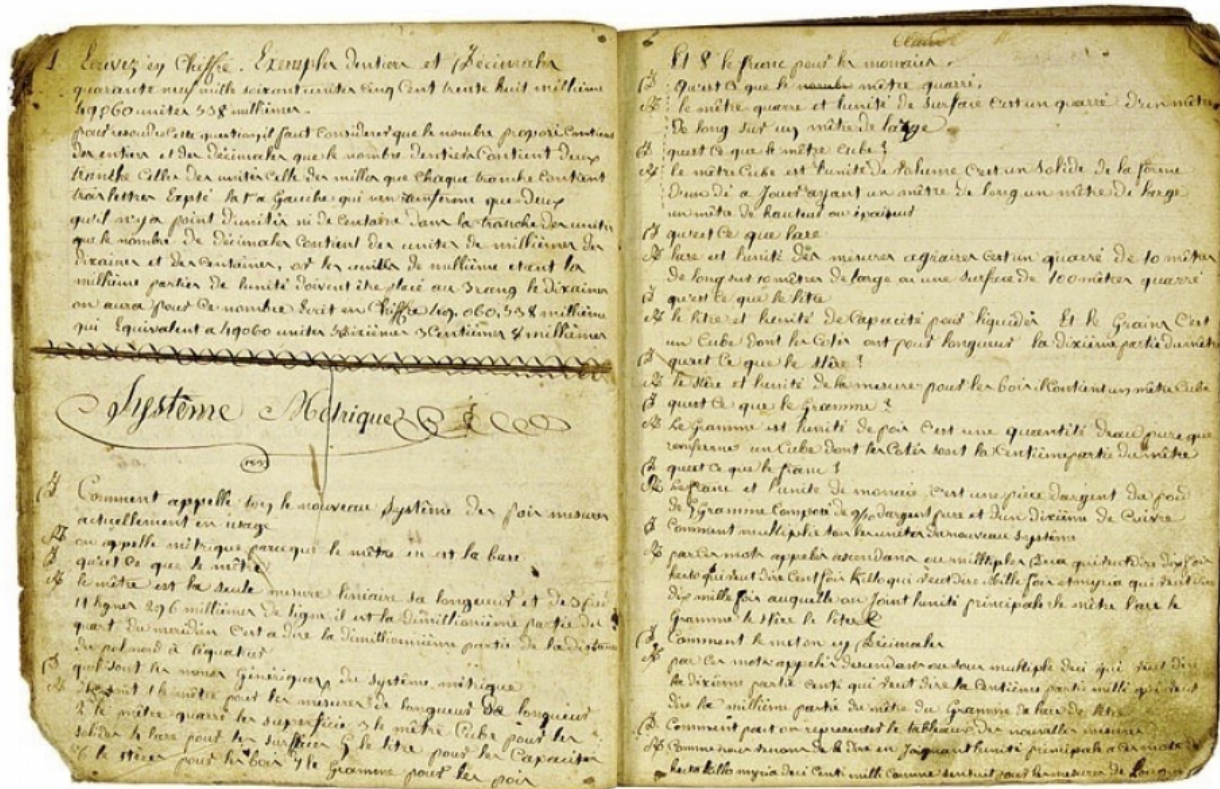 1 Ecrivez en Chiffre. Exemples dentiers et Décimales
quarante neuf mille soixant unites cinq Cent trente huit millième
49060 unites 538 millièmes.
pour resoudre Cette question, il faut considerer que le nombre proposé Contient
des entiers et des décimales que le nombre dentiers Contient deux
tranche Celles des unites Celle des milles que chaque tranche Contient
trois lettres Expté la 1e a Gauche qui nen renferme que deux
quil ny a point dunités ni de Centaine dans la tranche des unites
que le nombre de décimales Contient des unites de millièmes des
dixaines et des Centaines, or les unites de millième etant les
millièmes parties de lunité doivent être placé au 3 rang les dixaines
on aura pour Ce nombre Ecrit en Chiffre 49,060,538 millième
qui Equivalent a 49060 unites 5 dixièmes 3 Centièmes 8 millièmes
Système Métrique
D Comment appelle ton le nouveau Système des pois mesures
actuellement en usage
R on appelle métrique parceque le mètre en est la base
D quest Ce que le mètre
R le mètre est la seule mesure linéaire sa longueur et de 3 pié
11 lignes 296 millièmes de ligne il est la dimillionième partie du
quart du meridien Cest a dire la dimillionnième partie de la distance
du pol nord à léquateur
D quels sont les noms Génériques du Système métrique
R Ce sont 1 le mètre pour les mesures de longueur
2 le mètre quarré les superficie 3 le mètre Cube pour les
solides 4 lare pour les surfaces 5 le litre pour les Capacites
6 le stères pour les bois 7 le Gramme pour les pois
Et 8 le franc pour les monaies.
D Quest Ce que le mètre quarré.
R le mètre quarré et lunité de surface Cest un quarré dun mètre
de long sur un mètre de large
D quest Ce que le mètre Cube ?
R le mètre Cube est lunité de volume Cest un Solide de la forme
dun dé a Jouer ayant un mètre de long un mètre de large
un mètre de hauteur ou épaisseur
D quest Ce que lare
R lare et lunité des mesures agraires Cest un quarré de 10 mètres
de long sur 10 mètres de large ou une surface de 100 mètres quarré
D quest Ce que le litre
R le litre et lunité de Capacité pour liquides Et le Grains Cest
un Cube dont les Cotés ont pour longueur la dixième partie du mètre
D quest Ce que le stère ?
R le stère et lunité de la mesure pour les bois il Contient un mètre Cube
D quest Ce que le Gramme ?
R Le Gramme est lunité de pois Cest une quantité deau pure que
renferme un Cube dont les Cotés sont la Centième partie du mètre
D quest Ce que le franc ?
R Le franc et lunité de monaie Cest une pièce dargent du poid
de 5 Gramme Composé de 9/10 dargent pure et dun dixième de Cuivre
D Comment multiplie ton les unités du nouveau Système
R par Ces mots appelés ascendans ou multiples Deca qui veut dire dix fois
hecto qui veut dire Cent fois Killo qui veut dire Mille fois et myria qui veut dire
dix mille fois auquelle on Joint lunité principale le mètre lare le
Gramme le stère le litre
D Comment le met on en Décimales
R par Ces mots appelés desendans ou sous multiple deci qui veut dire
la dixième partie centi qui veut dire la Centième partie milli qui veut
dire la millième partie du mètre du Gramme de lare de litre
D Comment peut on representer le tableaux des nouvelles mesures
R Comme nous venons de le dire en Joignant lunité principale a Ces mots
hecto killo myria deci Centi milli comme sensuit pour les mesures de Longueur